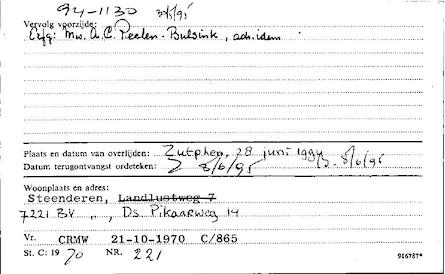 94-1130 30/5/95
Vervolg voorzijde:
Erfg: Mw. A.C. Peelen-Bulsink, adr. idem
Plaats en datum van overlijden: Zutphen, 28 juni 1994
Datum terugontvangst ordeteken: 8/6/95 8/6/95
Woonplaats en adres:
Steenderen, Landlustweg 7
7221 BV " , Ds. Pikaarweg 14
Vr. CRMW 21-10-1970 C/865
St. C: 1970 NR. 221
916787*